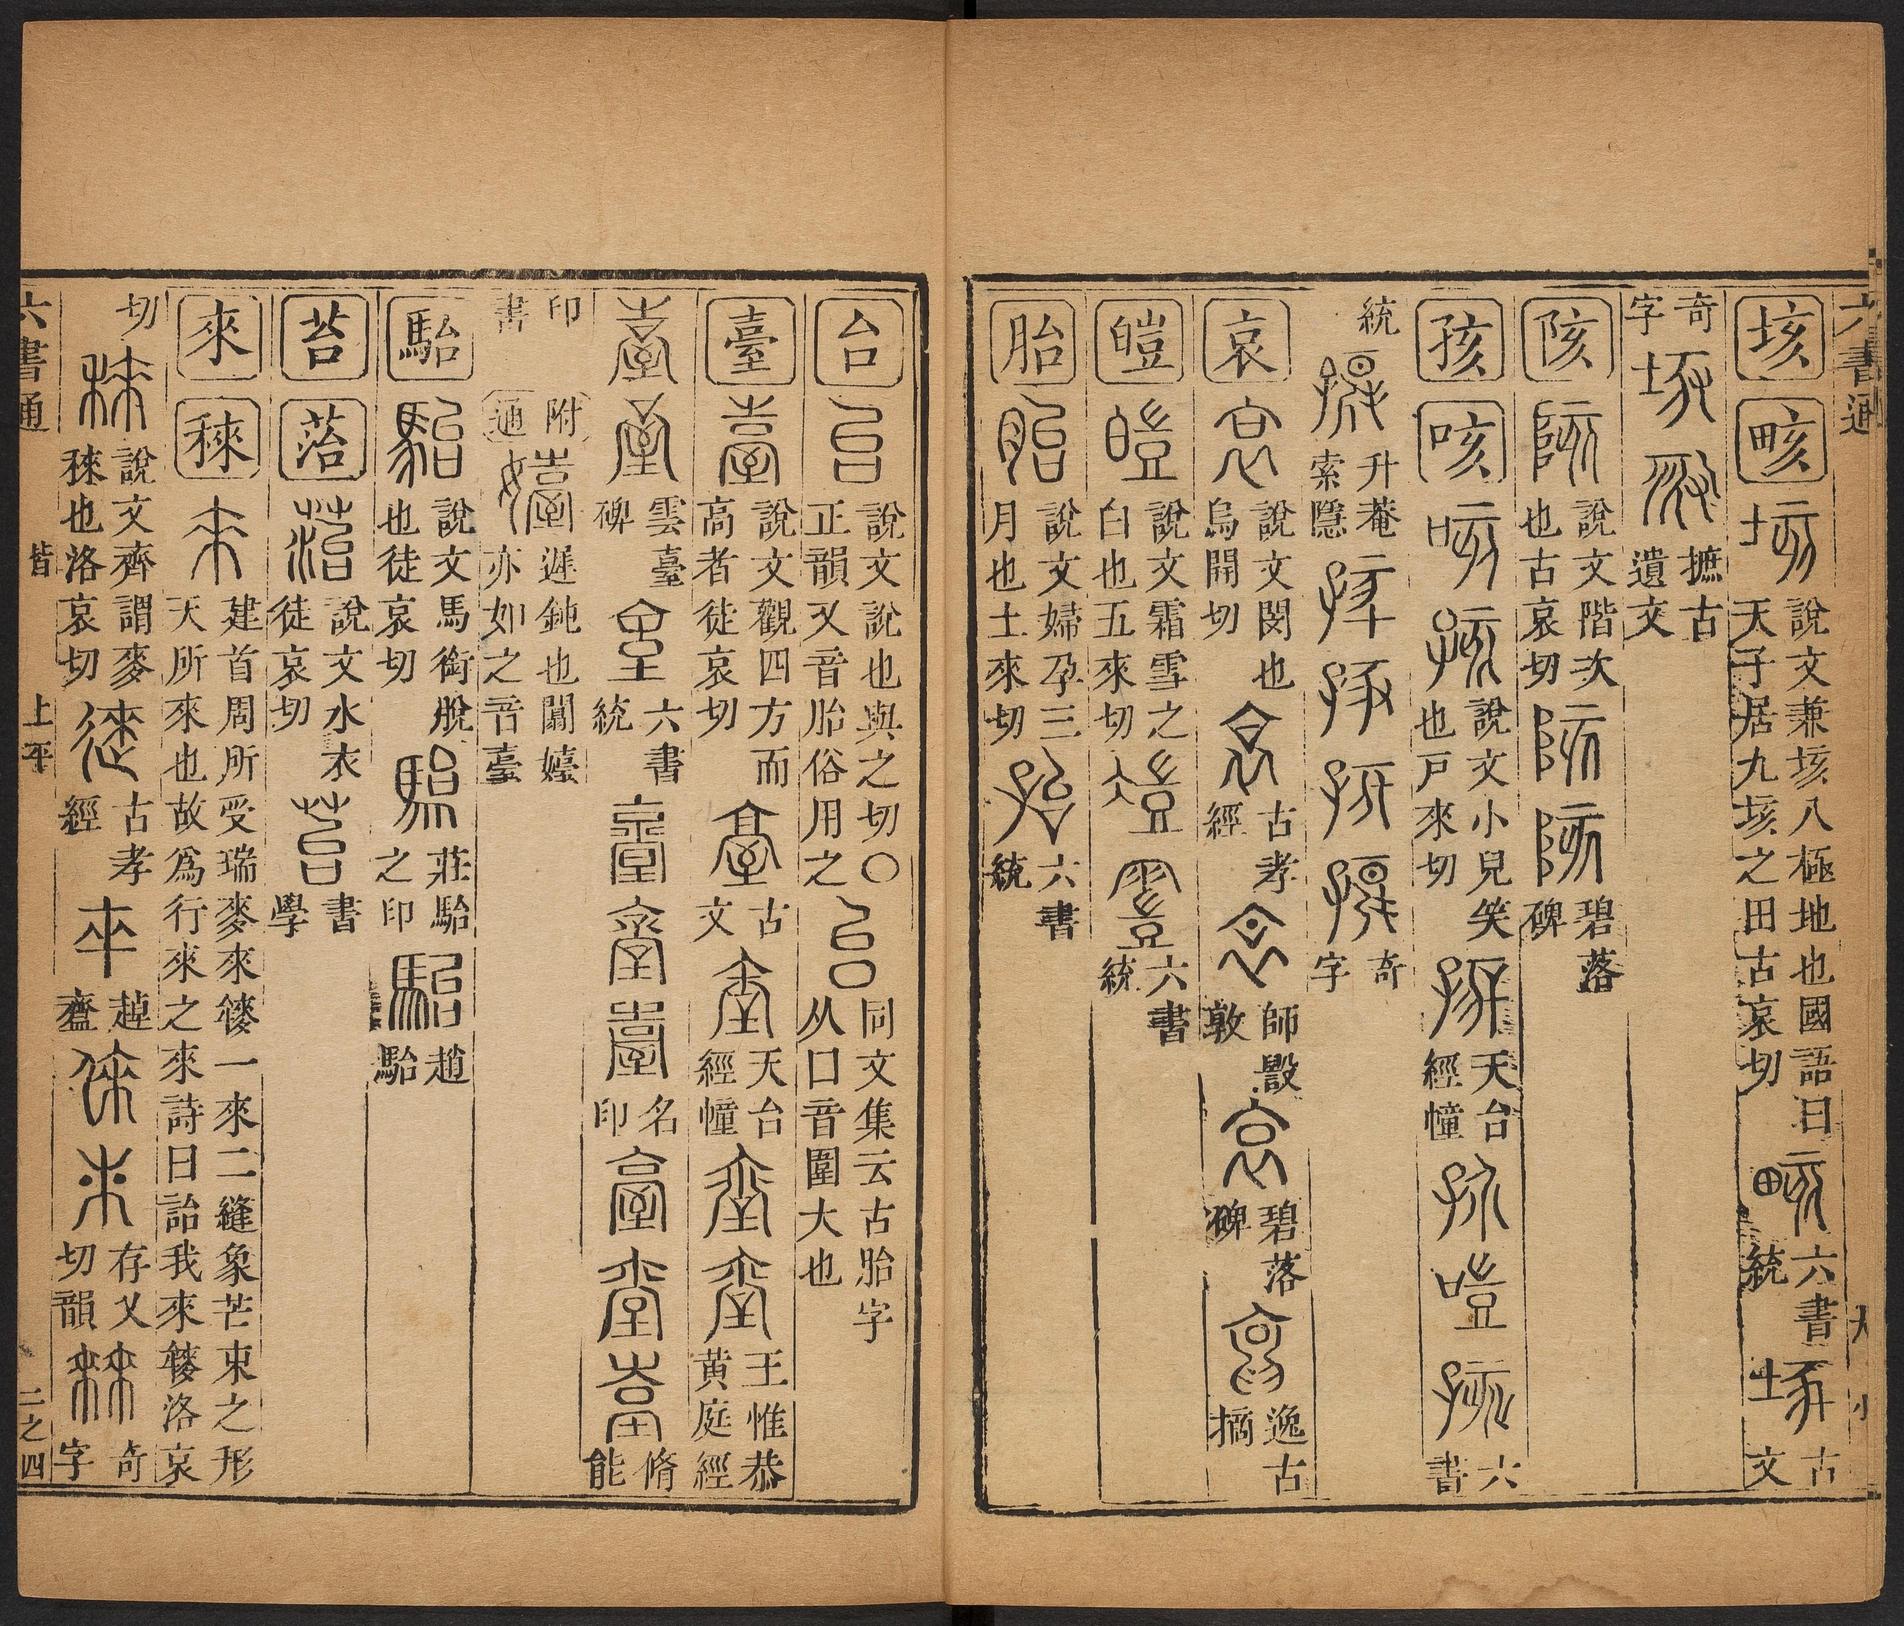 六書通
垓 畡 說文兼垓八極地也國語曰天子居九垓之田古哀切 六書統 古文
奇字 摭古遺文
陔 說文階次也古哀切 碧落碑
孩 咳 說文小兒笑也戶來切 天台經幢 六書
統 升菴索隱 奇字
哀 說文閔也烏開切 古孝經 師𣪘敦 碧落碑 逸古摘
皚 說文霜雪之白也五來切 六書統
胎 說文婦孕三月也土來切 六書統
台 說文說也與之切〇正韻又音胎俗用之 同文集云古胎字从口音圍大也
臺 說文觀四方而高者徒哀切 古文 天台經幢 王惟恭黃庭經
雲臺碑 六書統 名印 脩能
印書 附通 遲鈍也闒嬯亦如之音臺
駘 說文馬銜脫也徒哀切 莊駘之印 趙駘
苔 菭 說文水衣徒哀切 書學
來 秾 建首周所受瑞麥來𪎌一來二縫象芒朿之形天所來也故爲行來之來詩曰詒我來𪎌洛哀
切 說文齊謂麥秾也洛哀切 古孝經 趠𪗉 存乂切韻 奇字
六書通
皆
上平
二之四